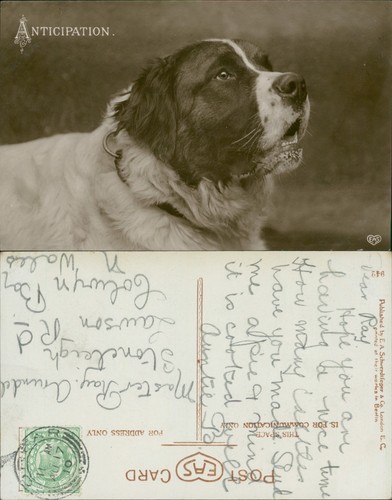 ANTICIPATION.
EAS
POST CARD
THIS SPACE
IS FOR COMMUNICATION ONLY
FOR ADDRESS ONLY
Dear Ray
Hope you are
having a nice time
How many castles
have you made Send
me a
it is cooked
Auntie
Master Ray Arundel
Stoneleigh
Lawson Rd
Colwyn Bay
N Wales
Published by E. A. Schwerdtfeger & Co London E. C.
Printed at their works in Berlin